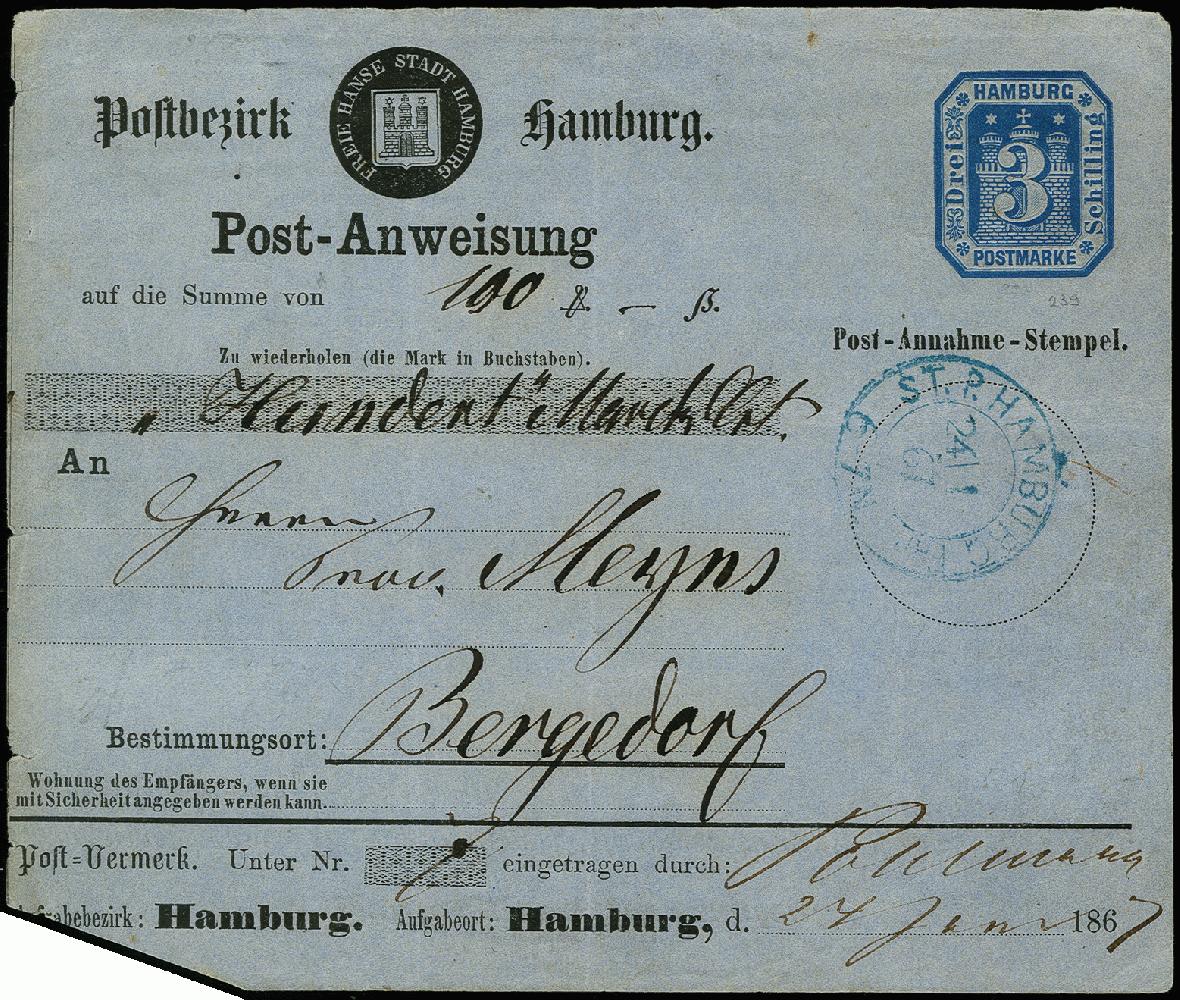 Postbezirk Hamburg.
FREIE HANSE STADT HAMBURG
HAMBURG
Drei 3 Schilling
POSTMARKE
Post-Anweisung
auf die Summe von 100 — ß.
239
Post-Annahme-Stempel.
Zu wiederholen (die Mark in Buchstaben).
"Hundert" Marck Crt.
ST.P. HAMBURG
24 1
67
An
Herrn
Meyns
Bestimmungsort: Bergedorf
Wohnung des Empfängers, wenn sie
mit Sicherheit angegeben werden kann.
Post-Vermerk. Unter Nr. eingetragen durch:
Aufgabebezirk: Hamburg. Aufgabeort: Hamburg, d. 24 Jan 1867